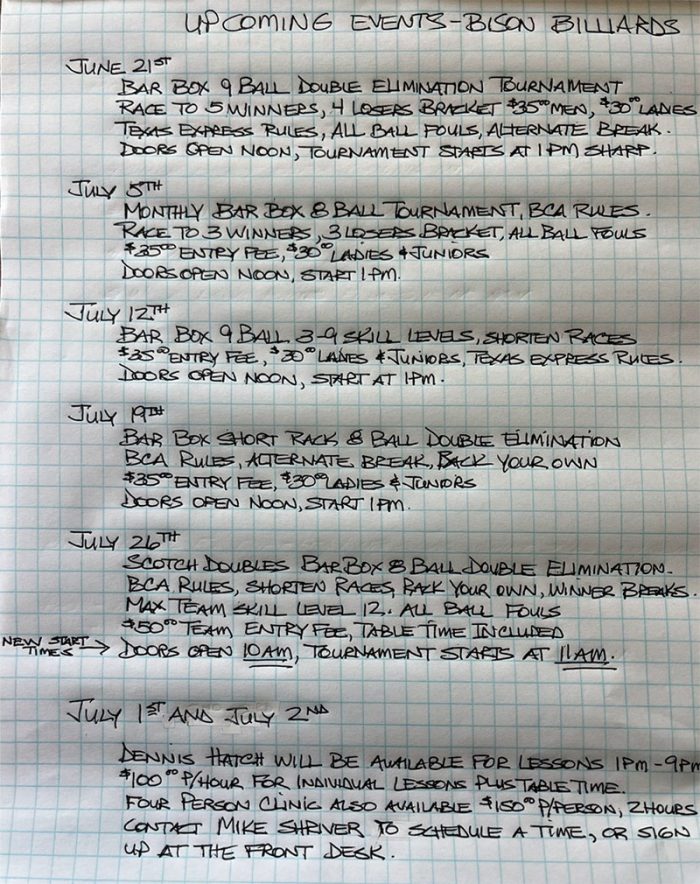 UPCOMING EVENTS-BISON BILLIARDS
JUNE 21ST
BAR BOX 9 BALL DOUBLE ELIMINATION TOURNAMENT
RACE TO 5 WINNERS, 4 LOSERS BRACKET $35.00 MEN, $30.00 LADIES
TEXAS EXPRESS RULES, ALL BALL FOULS, ALTERNATE BREAK.
DOORS OPEN NOON, TOURNAMENT STARTS AT 1PM SHARP.
JULY 5TH
MONTHLY BAR BOX 8 BALL TOURNAMENT, BCA RULES.
RACE TO 3 WINNERS, 3 LOSERS BRACKET, ALL BALL FOULS
$35.00 ENTRY FEE, $30.00 LADIES & JUNIORS
DOORS OPEN NOON, START 1PM.
JULY 12TH
BAR BOX 9 BALL 3-9 SKILL LEVELS, SHORTEN RACES
$35.00 ENTRY FEE, $30.00 LADIES & JUNIORS, TEXAS EXPRESS RULES.
DOORS OPEN NOON, START AT 1PM.
JULY 19TH
BAR BOX SHORT RACK 8 BALL DOUBLE ELIMINATION
BCA RULES, ALTERNATE BREAK, RACK YOUR OWN
$35.00 ENTRY FEE, $30.00 LADIES & JUNIORS
DOORS OPEN NOON, START 1PM.
JULY 26TH
SCOTCH DOUBLES BAR BOX 8 BALL DOUBLE ELIMINATION.
BCA RULES, SHORTEN RACES, RACK YOUR OWN, WINNER BREAKS.
MAX TEAM SKILL LEVEL 12. ALL BALL FOULS
$50.00 TEAM ENTRY FEE, TABLE TIME INCLUDED
NEW START TIMES → DOORS OPEN 10AM, TOURNAMENT STARTS AT 11AM.
JULY 1ST AND JULY 2ND
DENNIS HATCH WILL BE AVAILABLE FOR LESSONS 1PM-9PM
$100.00 P/HOUR FOR INDIVIDUAL LESSONS PLUS TABLE TIME.
FOUR PERSON CLINIC ALSO AVAILABLE $150.00 P/PERSON, 2 HOURS
CONTACT MIKE SHRIVER TO SCHEDULE A TIME, OR SIGN
UP AT THE FRONT DESK.